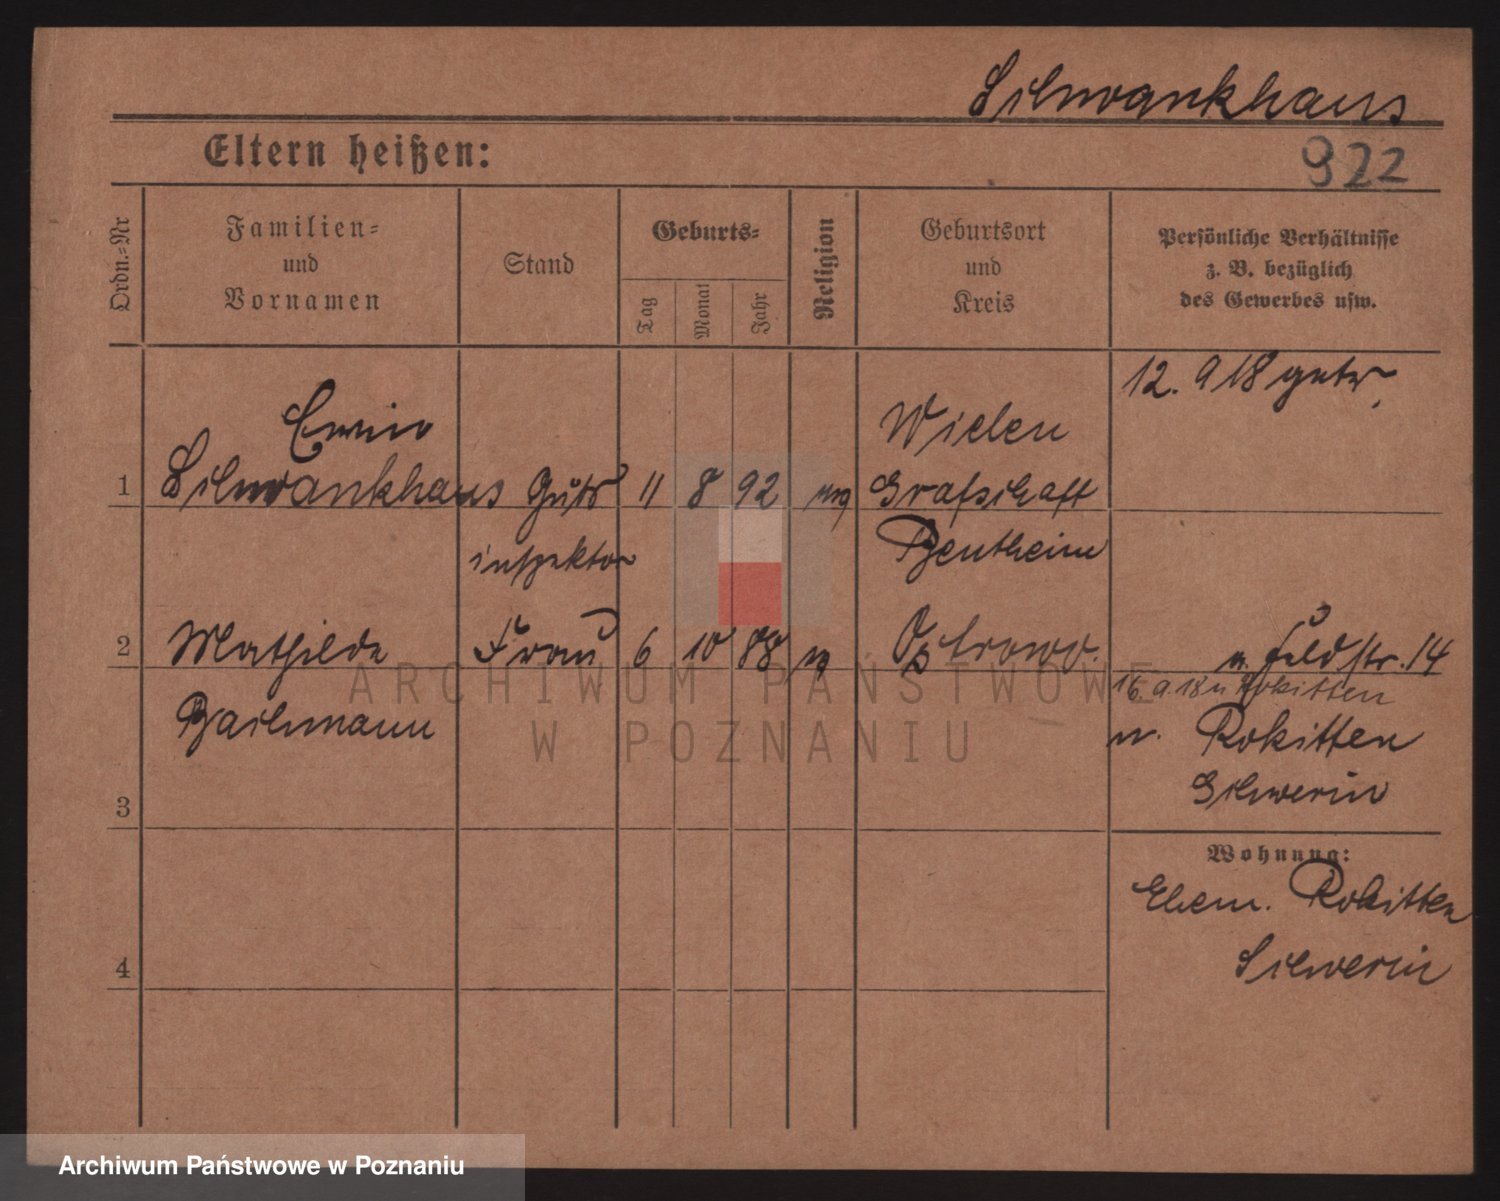 Schwankhaus
Eltern heißen:
922
Ordn.-Nr
Familien-
und
Vornamen
Stand
Geburts-
Tag
Monat
Jahr
Religion
Geburtsort
und
Kreis
Persönliche Verhältnisse
z. B. bezüglich
des Gewerbes usw.
12. 9 18 getr.
Erwin
Wielen
1 Schwankhaus Guts 11 8 92 Grafschaft
inspektor Bentheim
2 Mathilde Frau 6 10 88 Ostrowo. n. Feldstr. 14
16. 9. 18 n Rokitten
Bachmann n. Rokitten
3 Schwerin
Wohnung:
Ehem. Rokitten
4 Schwerin
ARCHIWUM PAŃSTWOWE
W POZNANIU
Archiwum Państwowe w Poznaniu